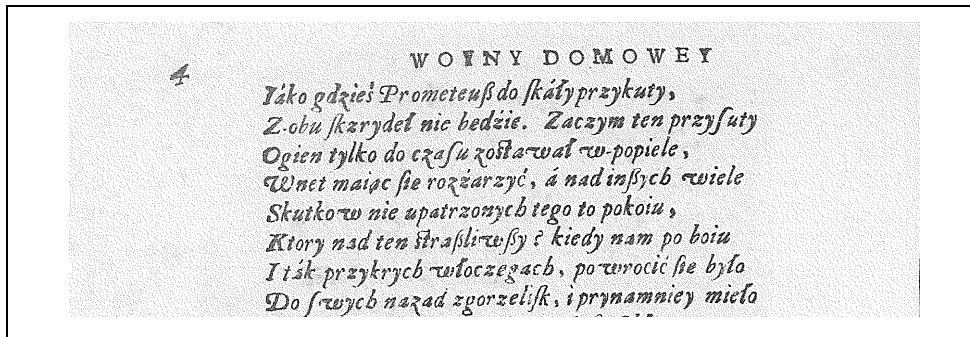 4
WOYNY DOMOWEY
Iáko gdzieś Prometeuß do ſkáły przykuty,
Z-obu ſkrzydeł nic bedźie. Zaczym ten przyſuty
Ogien tylko do czaſu zoſtawał w-popiele,
Wnet maiąc ſie rozżarzyć, á nad inßych wiele
Skutkow nie upatrzonych tego to pokoiu,
Ktory nad ten ſtraßliwßy? kiedy nam po boiu
I ták przykrych włoczegach, powrocić ſie było
Do ſwych nazad zgorzeliſk, i prynamniey mieło